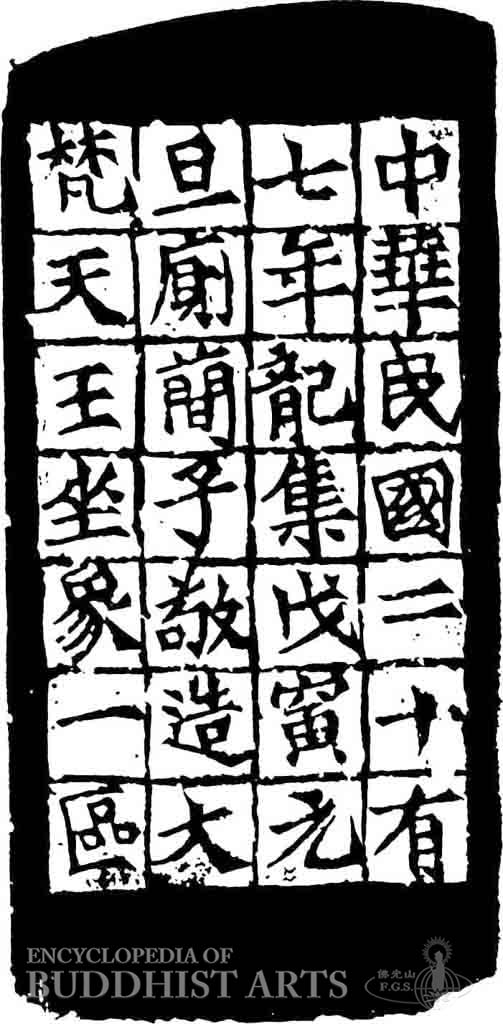 中華民國二十有
七年龍集戊寅元
旦廁簡子敬造大
梵天王坐象一區
ENCYCLOPEDIA OF
BUDDHIST ARTS
佛光山
F.G.S.